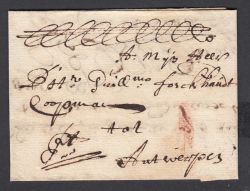 A Mijn Heer
Sr. Guill.mo forchhoudt
Coopman
tot
Antwerpen